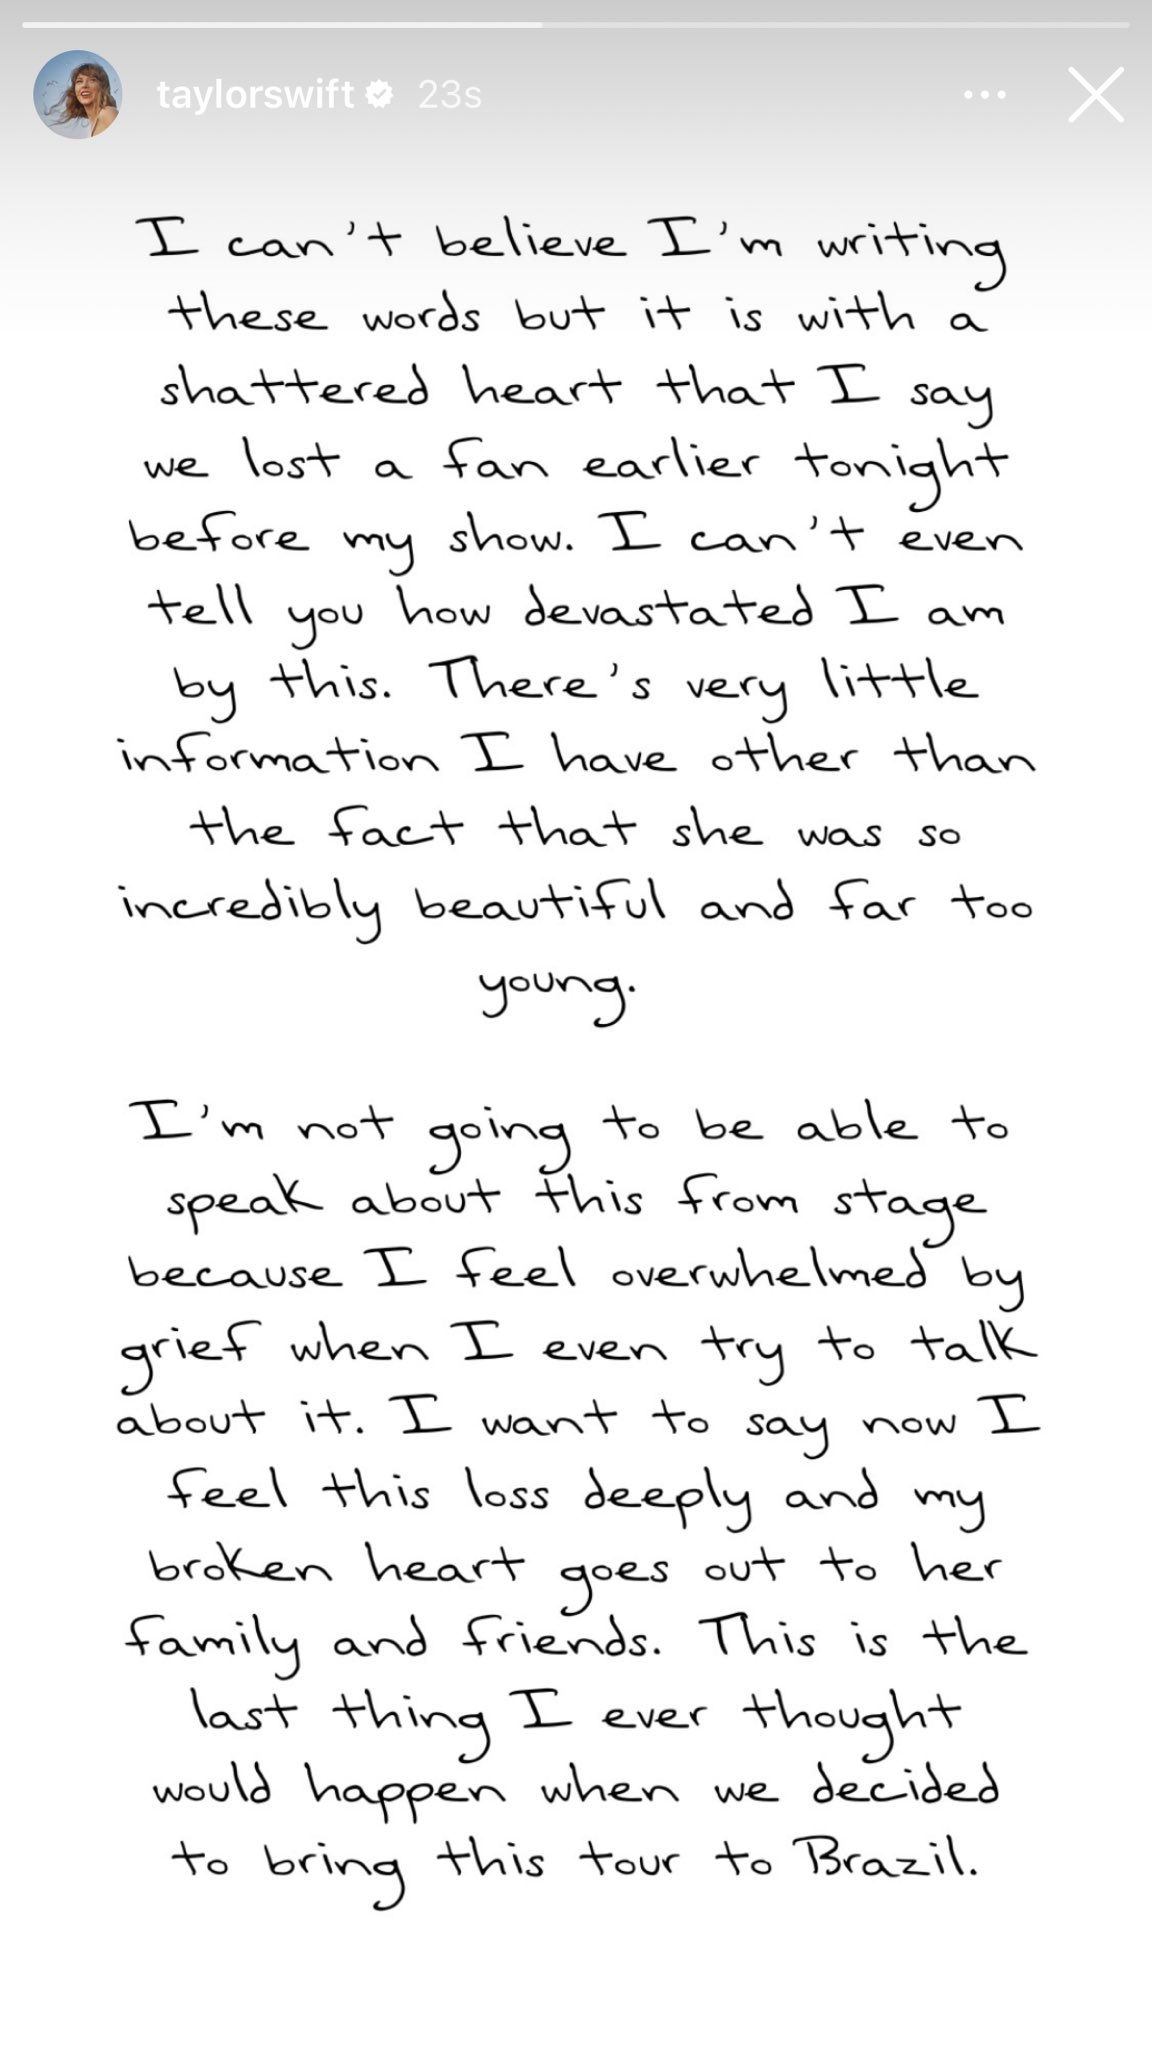 taylorswift 23s
I can't believe I'm writing
these words but it is with a
shattered heart that I say
we lost a fan earlier tonight
before my show. I can't even
tell you how devastated I am
by this. There's very little
information I have other than
the fact that she was so
incredibly beautiful and far too
young.
I'm not going to be able to
speak about this from stage
because I feel overwhelmed by
grief when I even try to talk
about it. I want to say now I
feel this loss deeply and my
broken heart goes out to her
family and friends. This is the
last thing I ever thought
would happen when we decided
to bring this tour to Brazil.